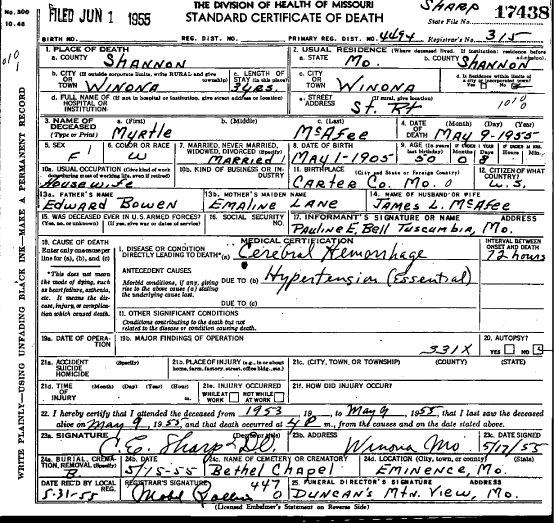 No. 300
10-48
FILED JUN 1 1955
THE DIVISION OF HEALTH OF MISSOURI
STANDARD CERTIFICATE OF DEATH
SHARP
State File No. 17438
BIRTH NO. REG. DIST. NO. PRIMARY REG. DIST. NO. 4494 Registrar's No. 315
1. PLACE OF DEATH
a. COUNTY SHANNON
2. USUAL RESIDENCE (Where deceased lived. If institution: residence before admission)
a. STATE Mo. b. COUNTY SHANNON
b. CITY (If outside corporate limits, write RURAL and give township) OR TOWN WINONA
c. LENGTH OF STAY (in this place) 3 yrs.
c. CITY OR TOWN WINONA
d. Is Residence within limits of a city or incorporated town? Yes No
d. FULL NAME OF HOSPITAL OR INSTITUTION (If not in hospital or institution, give street address or location)
e. STREET ADDRESS (If rural, give location) St. Rt. 1010
3. NAME OF DECEASED (Type or Print) a. (First) Myrtle b. (Middle) c. (Last) McAfee
4. DATE OF DEATH (Month) (Day) (Year) MAY 9-1955
5. SEX F 6. COLOR OR RACE W
7. MARRIED, NEVER MARRIED, WIDOWED, DIVORCED (Specify) MARRIED
8. DATE OF BIRTH MAY 1-1905
9. AGE (In years last birthday) 50 Months 0 Days 8 Hours Min.
10a. USUAL OCCUPATION (Give kind of work done during most of working life, even if retired) Housewife
10b. KIND OF BUSINESS OR INDUSTRY
11. BIRTHPLACE (City and State or Foreign Country) CARTER Co. Mo. 0
12. CITIZEN OF WHAT COUNTRY? U.S.
13a. FATHER'S NAME EDWARD BOWEN
13b. MOTHER'S MAIDEN NAME EMALINE LANE
14. NAME OF HUSBAND OR WIFE JAMES L. McAfee
15. WAS DECEASED EVER IN U.S. ARMED FORCES? (Yes, no, or unknown) (If yes, give war or dates of service)
16. SOCIAL SECURITY NO.
17. INFORMANT'S SIGNATURE OR NAME ADDRESS
PAULINE E. BELL TUSCUMBIA, MO.
18. CAUSE OF DEATH
Enter only one cause per line for (a), (b), and (c)
MEDICAL CERTIFICATION
INTERVAL BETWEEN ONSET AND DEATH
I. DISEASE OR CONDITION DIRECTLY LEADING TO DEATH* (a) Cerebral Hemorrhage 72 hours
*This does not mean the mode of dying, such as heart failure, asthenia, etc. It means the disease, injury, or complication which caused death.
ANTECEDENT CAUSES
Morbid conditions, if any, giving rise to the above cause (a) stating the underlying cause last.
DUE TO (b) Hypertension (Essential)
DUE TO (c)
II. OTHER SIGNIFICANT CONDITIONS
Conditions contributing to the death but not related to the disease or condition causing death.
19a. DATE OF OPERATION 19b. MAJOR FINDINGS OF OPERATION 331X
20. AUTOPSY? YES NO
21a. ACCIDENT SUICIDE HOMICIDE (Specify)
21b. PLACE OF INJURY (e.g., in or about home, farm, factory, street, office bldg., etc.)
21c. (CITY, TOWN, OR TOWNSHIP) (COUNTY) (STATE)
21d. TIME OF INJURY (Month) (Day) (Year) (Hour) m.
21e. INJURY OCCURRED WHILE AT WORK NOT WHILE AT WORK
21f. HOW DID INJURY OCCUR?
22. I hereby certify that I attended the deceased from 1953, 19 , to May 9, 1955, that I last saw the deceased
alive on May 9, 1955, and that death occurred at 4 P m., from the causes and on the date stated above.
23a. SIGNATURE (Degree or title) C.E. Sharp DO
23b. ADDRESS Winona Mo.
23c. DATE SIGNED 5/17/55
24a. BURIAL, CREMATION, REMOVAL (Specify) B
24b. DATE 5/15-55
24c. NAME OF CEMETERY OR CREMATORY Bethel Chapel
24d. LOCATION (City, town, or county) (State) EMINENCE, MO.
DATE REC'D BY LOCAL REG. 5-31-55
REGISTRAR'S SIGNATURE 447 0
25. FUNERAL DIRECTOR'S SIGNATURE ADDRESS
DUNCAN'S Mtn. View, Mo.
(Licensed Embalmer's Statement on Reverse Side)
WRITE PLAINLY—USING UNFADING BLACK INK—MAKE A PERMANENT RECORD